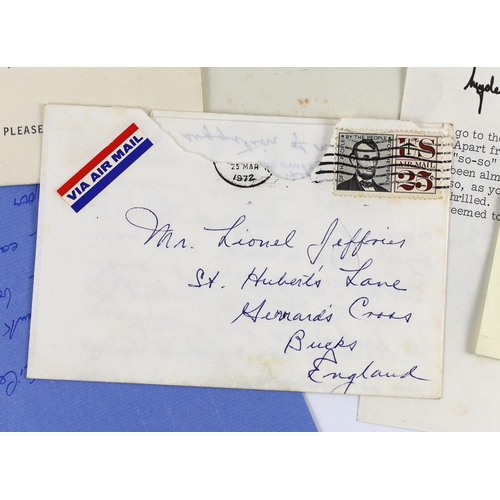 PLEASE
VIA AIR MAIL
25 MAR
1972
BY THE PEOPLE
US
AIR MAIL
25
Mr. Lionel Jeffries
St. Hubert's Lane
Gerrard's Cross
Bucks
England
go to the
Apart fr
"so-so"
been alm
so, as yo
thrilled.
eemed to